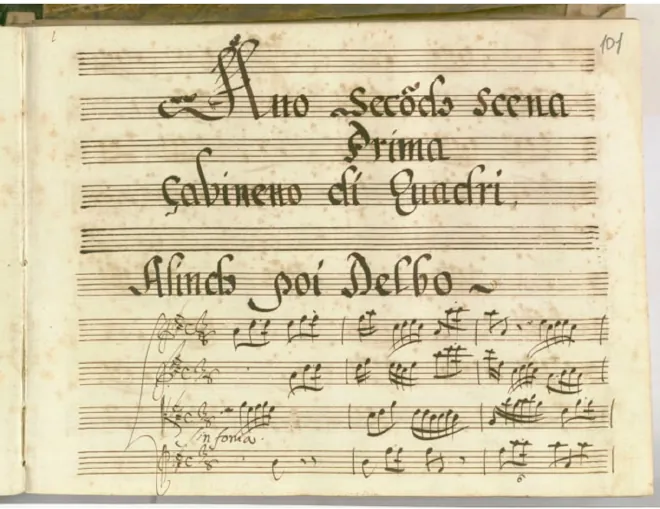 101
Atto Secõdo Scena
Prima
Gabinetto di Quadri.
Alindo poi Delbo ~
Sinfonia.
6